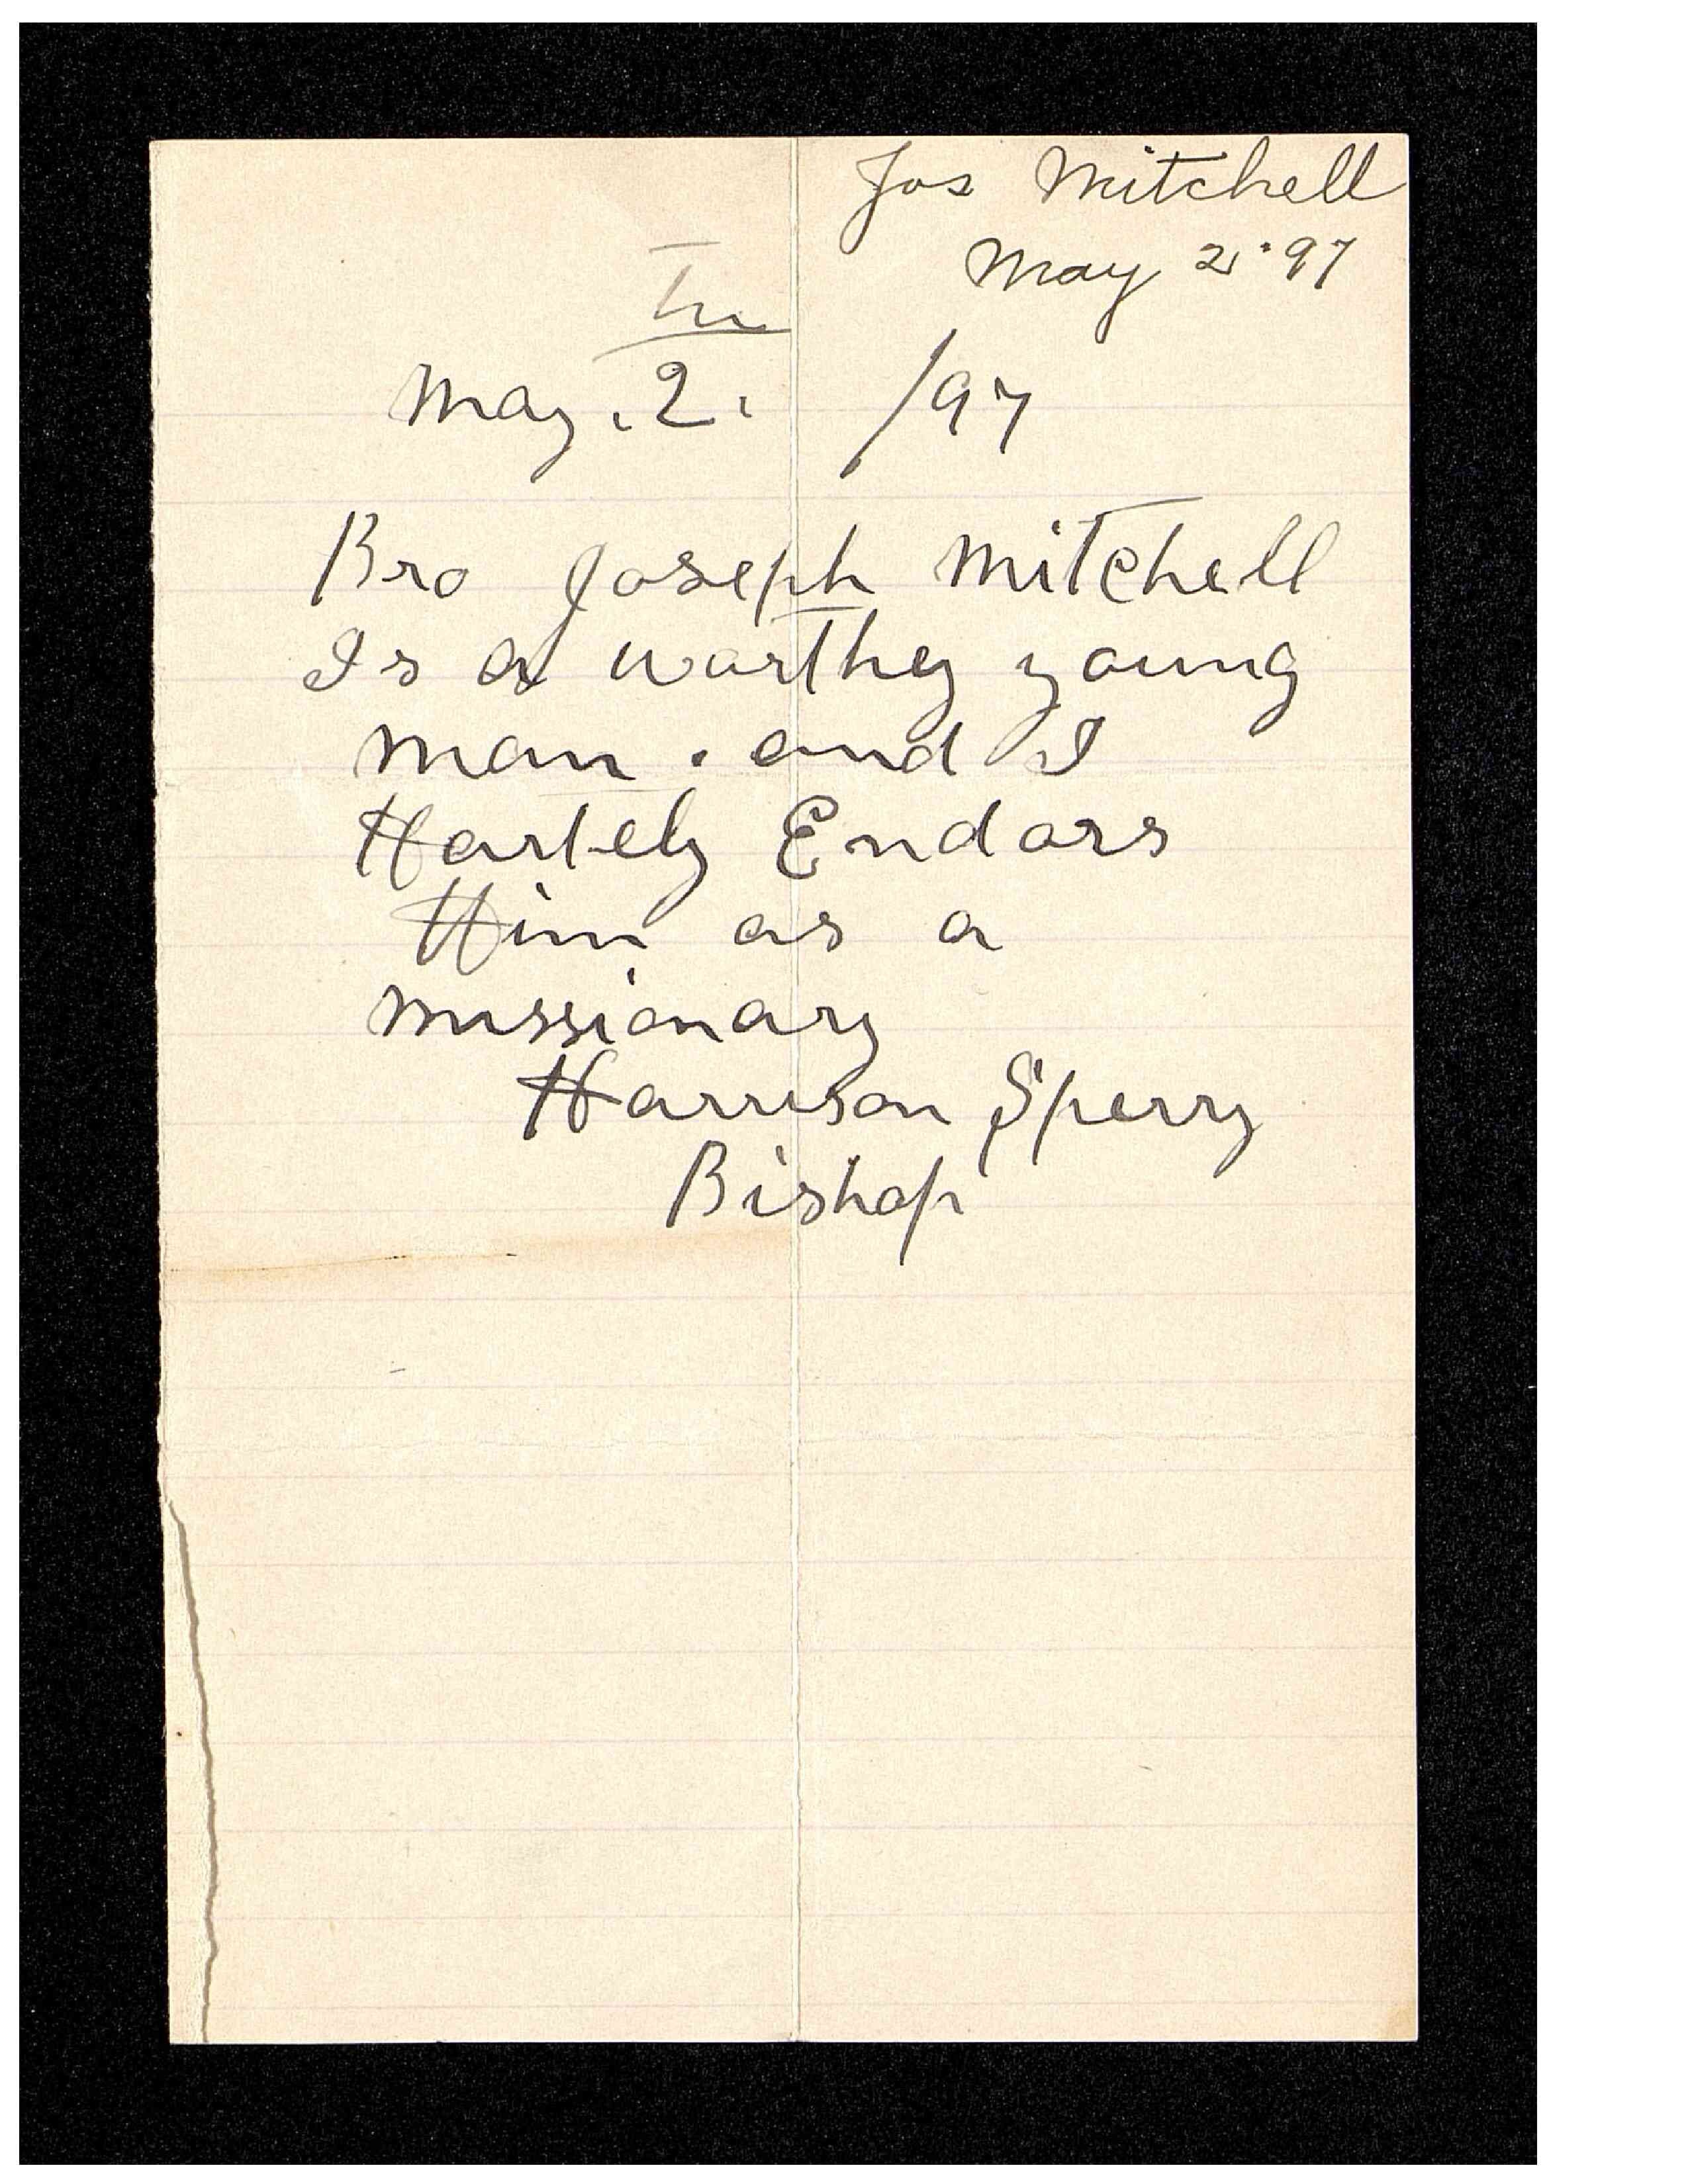 Jos Mitchell
May 2 '97
May . 2 . /97
Bro Joseph Mitchell
Is a worthey young
man . and I
Hartely Endors
Him as a
missionary
Harrison Sperry
Bishop